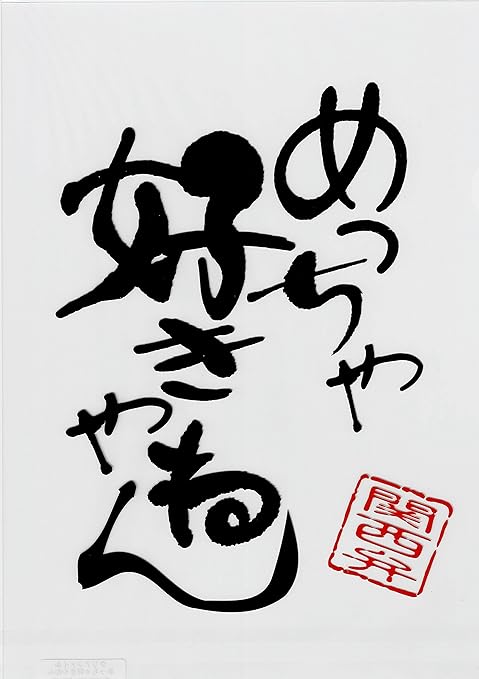 めっちゃ
好きやねん
関西弁